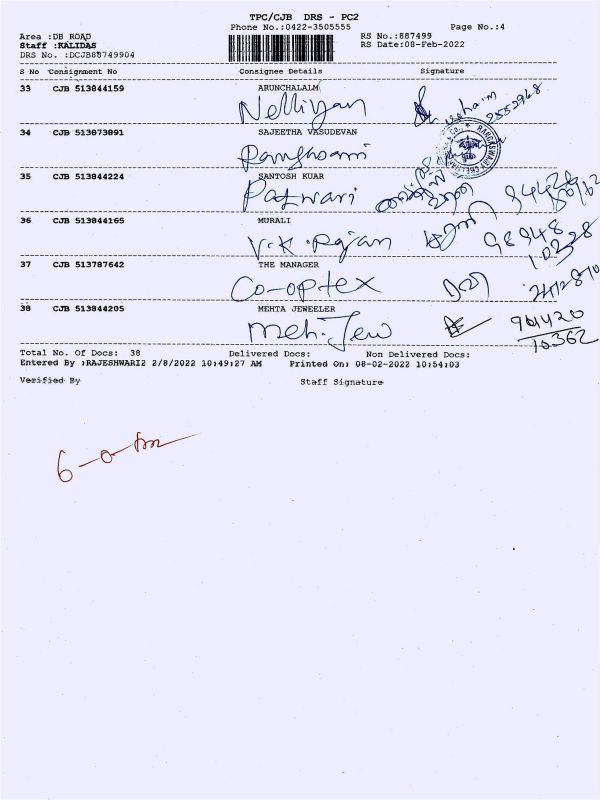 TPC/CJB DRS - PC2
Phone No.:0422-3505555 Page No.:4
Area :DB ROAD RS No.:887499
Staff :KALIDAS RS Date:08-Feb-2022
DRS No. :DCJB88749904
S No Consignment No Consignee Details Signature
33 CJB 513844159 ARUNCHALALM
Nelliyan 2552968
34 CJB 513873891 SAJEETHA VASUDEVAN
Rangasami
35 CJB 513844224 SANTOSH KUAR
Patwari
36 CJB 513844165 MURALI
V.K. Rajan 98948
10228
37 CJB 513787642 THE MANAGER
Co-optex
38 CJB 513844205 MEHTA JEWEELER
Meh. Jew
10362
Total No. Of Docs: 38 Delivered Docs: Non Delivered Docs:
Entered By :RAJESHWARI2 2/8/2022 10:49:27 AM Printed On: 08-02-2022 10:54:03
Verified By Staff Signature